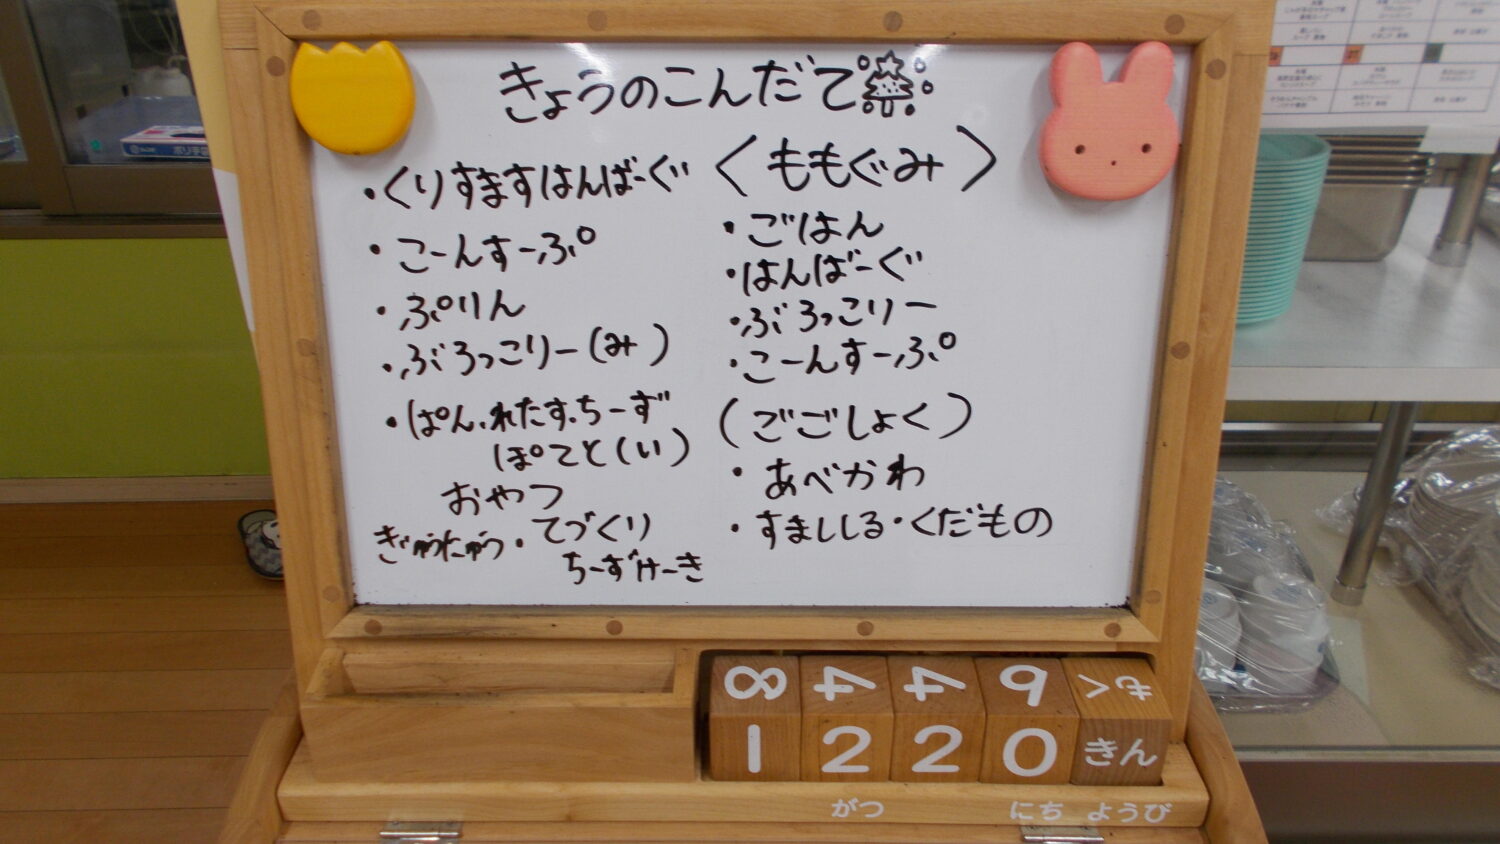 きょうのこんだて
・くりすますはんばーぐ
・こーんすーぷ
・ぷりん
・ぶろっこりー(み)
・ぱん、れたす、ちーず
ぽてと(い)
おやつ
ぎゅうにゅう・てづくり
ちーずけーき
〈ももぐみ〉
・ごはん
・はんばーぐ
・ぶろっこりー
・こーんすーぷ
(ごごしょく)
・あべかわ
・すましじる・くだもの
8 4 4 9 もく
1 2 2 0 きん
がつ にち ようび
ポリ手袋